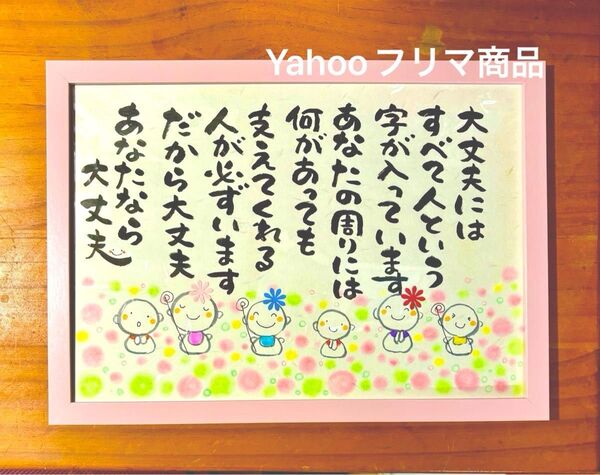 Yahooフリマ商品
大丈夫には
すべて人という
字が入っています
あなたの周りには
何があっても
支えてくれる
人が必ずいます
だから大丈夫
あなたなら
大丈夫